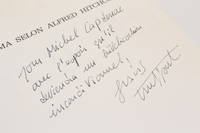 MA SELON ALFRED HITCHC
Pour Michel Capdenac
avec l'espoir qu'il
deviendra un hitchcockien
inconditionnel!
Truffaut